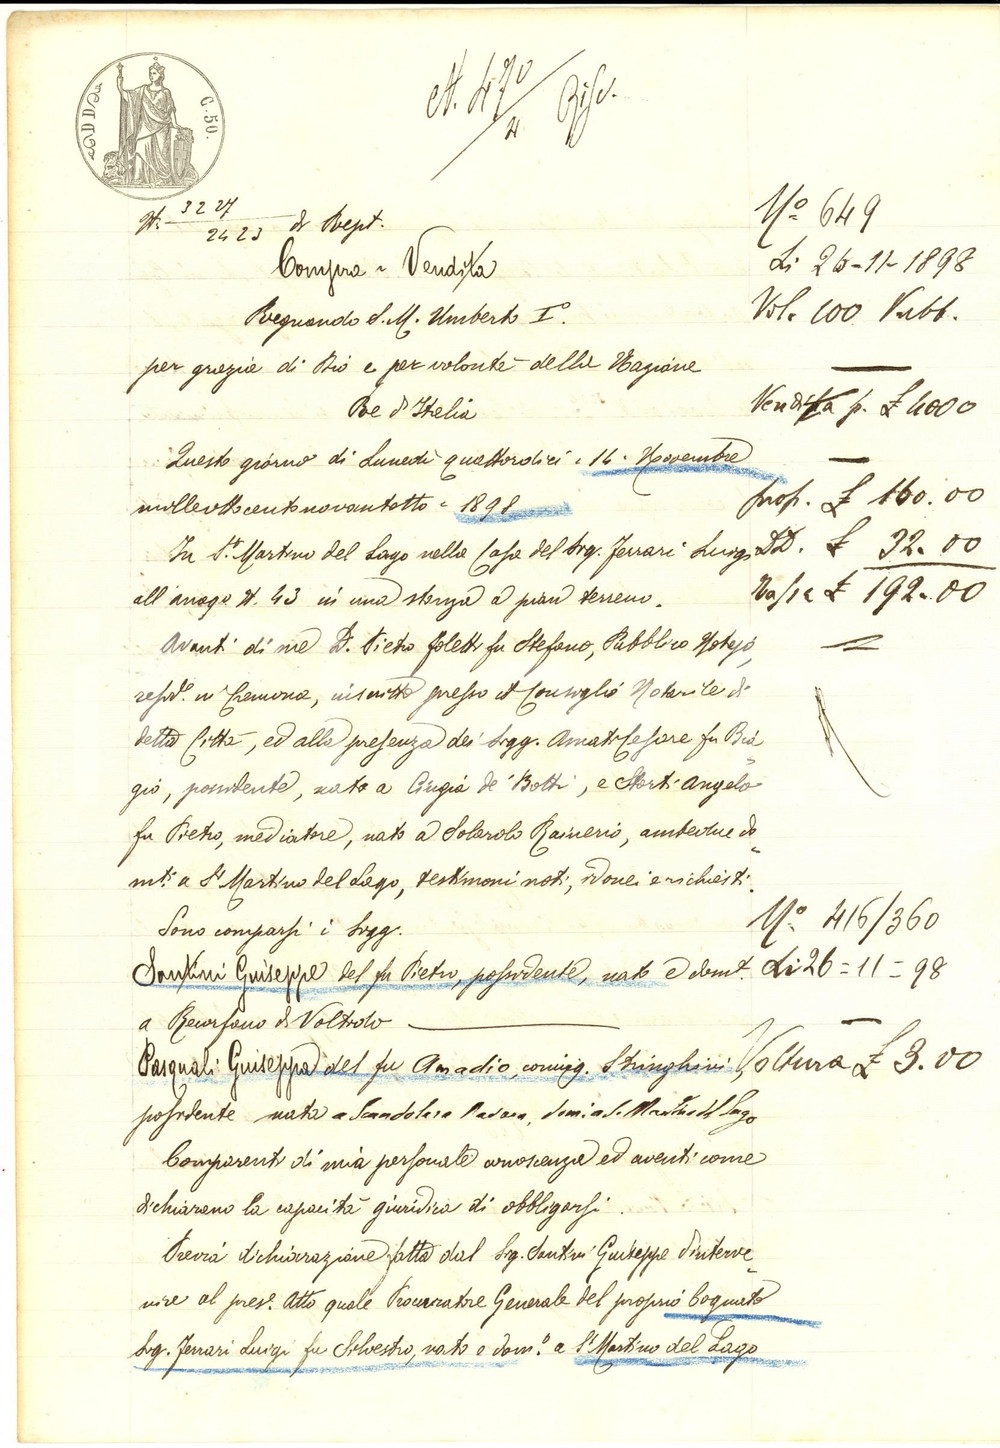 C. 50.
N. 470/4 Ris.
N. 3227/2423 di Rept.
Compra - Vendita
Regnando S. M. Umberto I.°
per grazia di Dio e per volontà della Nazione
Re d'Italia
Questo giorno di Lunedì quattordici - 14 - Novembre
milleottocentonovantotto - 1898
In S.t Martino del Lago nella Casa del Sig. Ferrari Luigi
all'anag.o N. 43 in una stanza a pian terreno.
Avanti di me D.r Pietro Foletti fu Stefano, Pubblico Notajo,
resid.e in Cremona, inscritto presso il Consiglio Notarile di
detta Città, ed alla presenza dei Sigg. Amati Cesare fu Bia
gio, possidente, nato a Cingia de' Botti, e Storti Angelo
fu Pietro, mediatore, nato a Solarolo Rainerio, ambedue do
mti a S.t Martino del Lago, testimoni noti, idonei e richiesti.
Sono comparsi i Sigg.
Santini Giuseppe del fu Pietro, possidente, nato e domt.
a Recorfano di Voltido
Pasquali Giuseppa del fu Amadio, coniug. Stringhini,
possidente nata a Scandolara Ravara, domi a S. Martino del Lago
Comparenti di mia personale conoscenza ed aventi come
dichiarano la capacità giuridica di obbligarsi.
Previa dichiarazione fatta dal Sig. Santini Giuseppe d'interve
nire al pres.e Atto quale Procuratore Generale del proprio Cognato
Sig. Ferrari Luigi fu Silvestro, nato e dom.° a S.t Martino del Lago
N° 649
Li 26-11-1898
Vol. 100 Pubb.
Vendita p. £ 4000
prop. £ 160.00
DD. £ 32.00
Tassa £ 192.00
N° 416/360
Li 26=11=98
Voltura £ 3.00